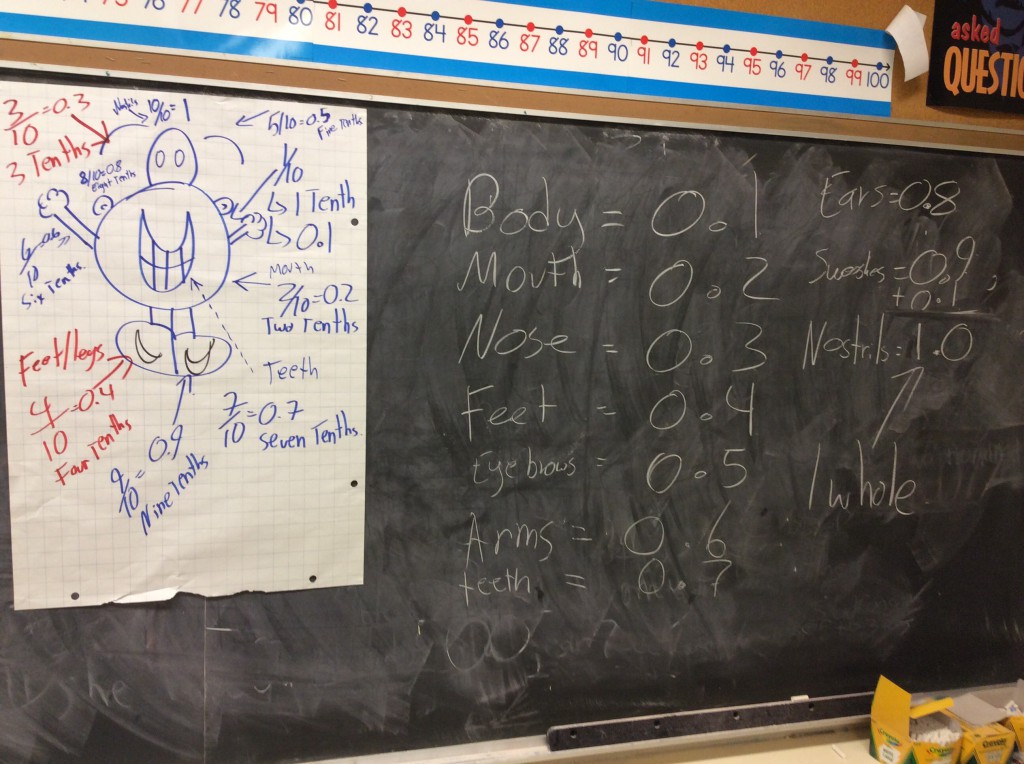 77 78 79 80 81 82 83 84 85 86 87 88 89 90 91 92 93 94 95 96 97 98 99 100
asked
QUESTIO
3/10 = 0.3
3 Tenths
10/10 = 1
5/10 = 0.5
Five Tenths
8/10 = 0.8
Eight Tenths
1/10
↳ 1 Tenth
↳ 0.1
6/10 = 0.6
Six Tenths
← Mouth
2/10 = 0.2
Two Tenths
Feet/legs
4/10 = 0.4
Four Tenths
Teeth
7/10 = 0.7
Seven Tenths
9/10 = 0.9
Nine Tenths
Body = 0.1
Mouth = 0.2
Nose = 0.3
Feet = 0.4
Eyebrows = 0.5
Arms = 0.6
teeth = 0.7
Ears = 0.8
Swooshes = 0.9
+ 0.1
Nostrils = 1.0
1 whole